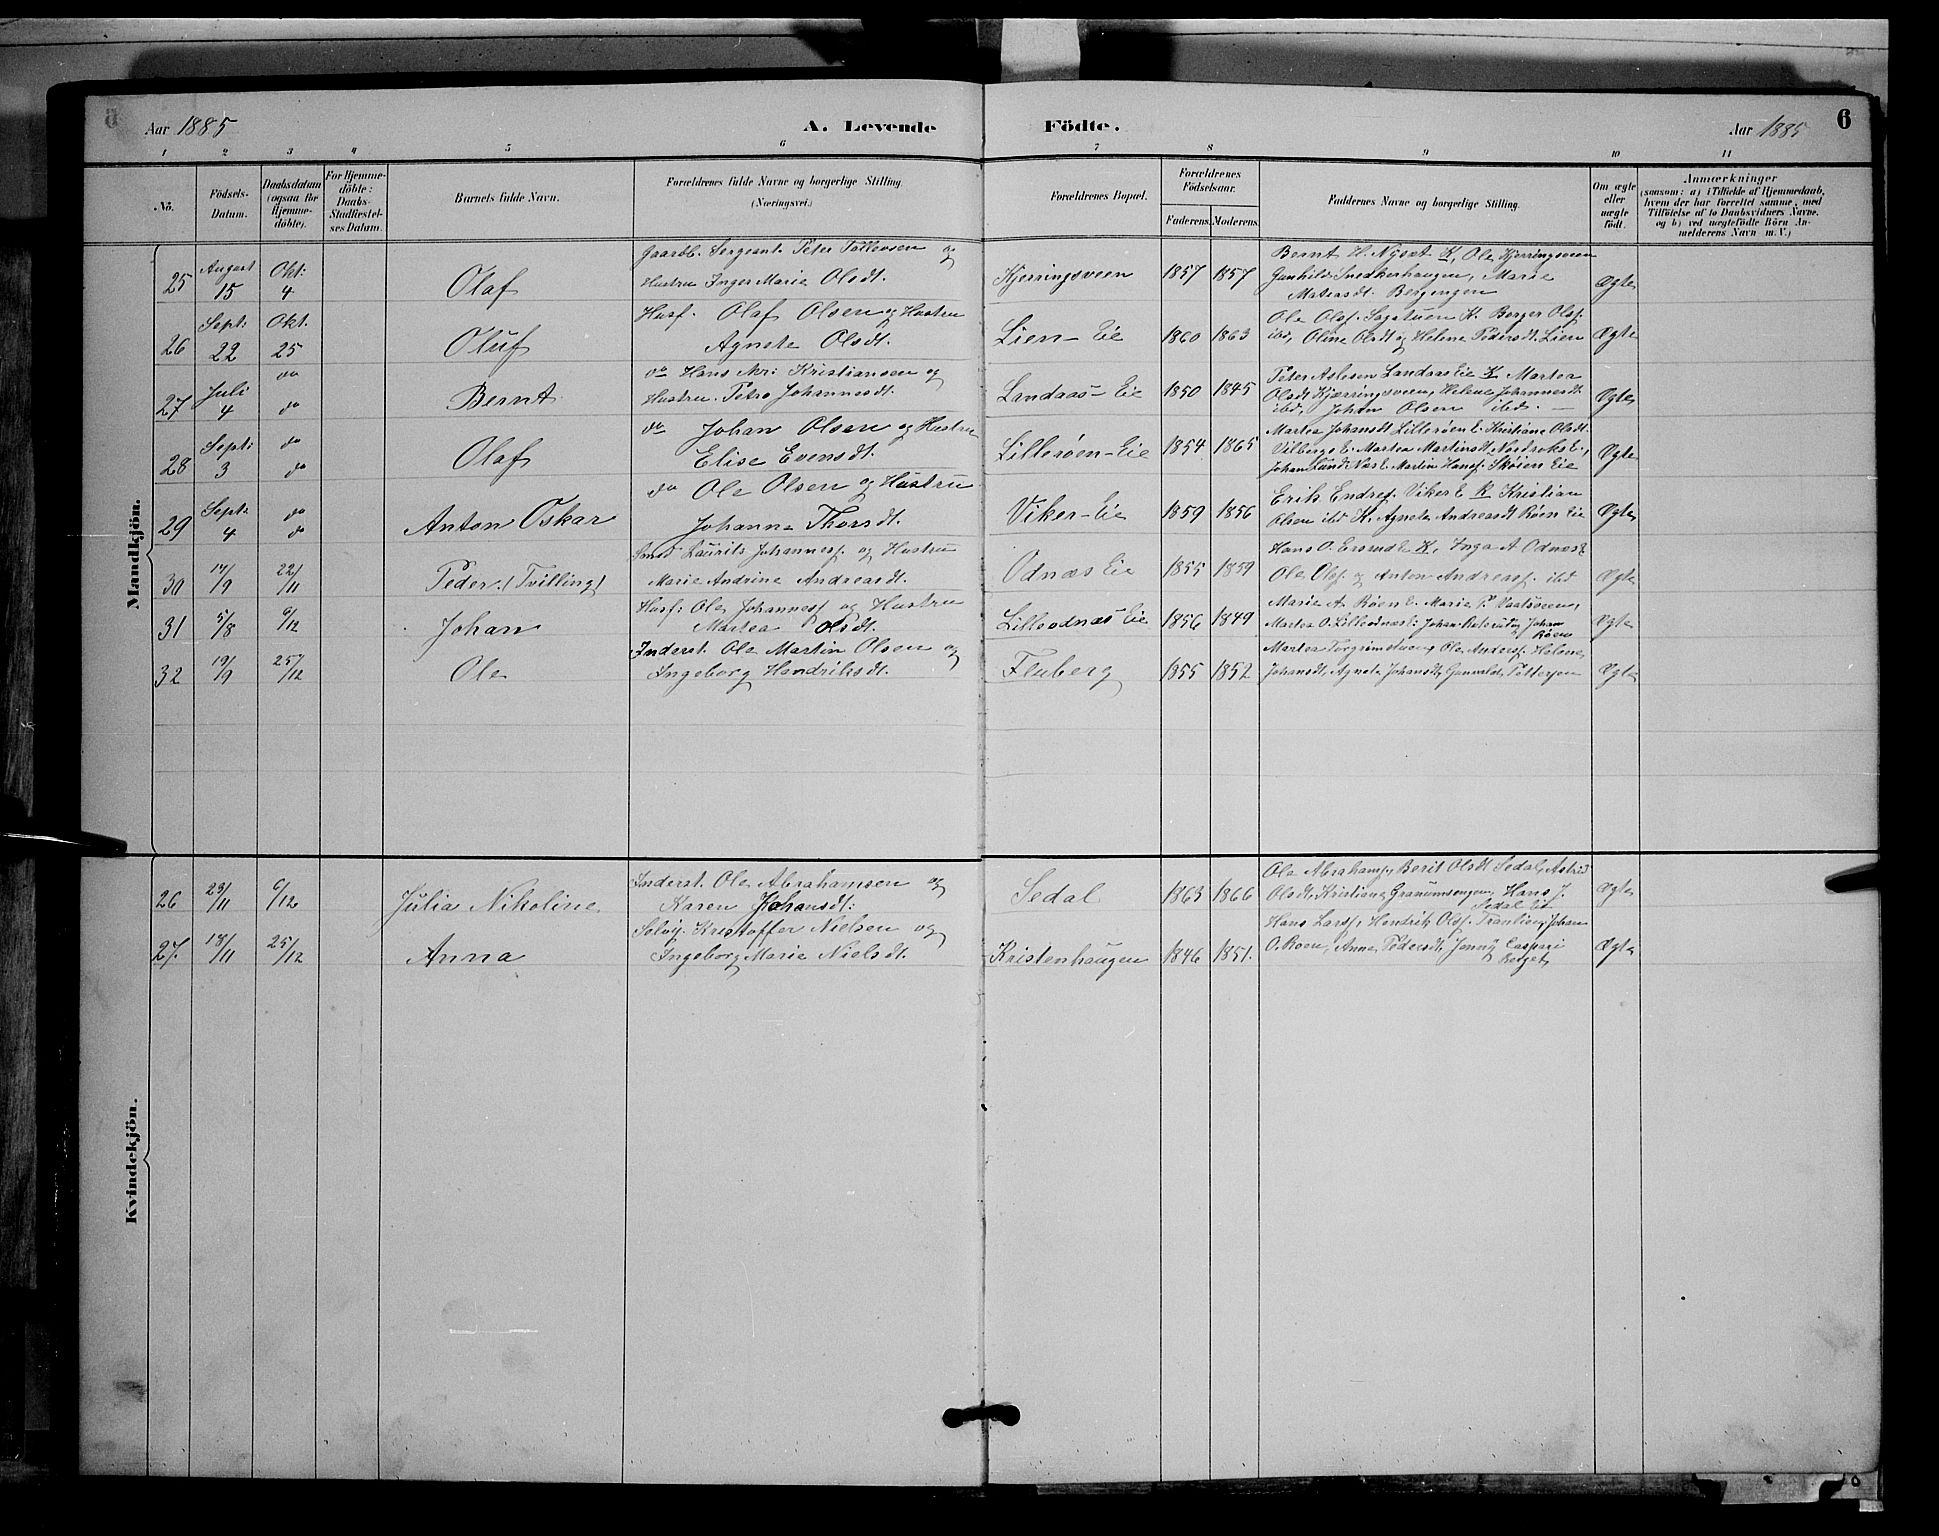 Aar 1885
A. Levende Födte.
Aar 1885 6
1 2 3 4 5 6 7 8 9 10 11
No.
Födsels-Datum.
Daabsdatum (ogsaa for Hjemme-döbte).
For Hjemme-döbte: Daabs-Stadfæstel-ses Datum.
Barnets fulde Navn.
Forældrenes fulde Navne og borgerlige Stilling (Næringsvei.)
Forældrenes Bopæl.
Forældrenes Födselsaar.
Faderens. Moderens.
Faddernes Navne og borgerlige Stilling.
Om ægte eller uægte födt.
Anmærkninger
(saasom: a) i Tilfælde af Hjemmedaab, hvem der har forrettet samme, med Tilföielse af to Daabsvidners Navne, og b) ved uægtefödte Börn An-melderens Navn m. V.)
Mandkjön.
25 August 15 Okt: 4 Olaf
Gaardb. Sergeant Peter Tollevsen og
Hustru Inger Marie Olsdt.
Kjerringsveen 1857 1857
Bernt H. Nysæt K, Ole Kjerringsveen
Gunhild Snedkerhaugen, Marie
Matiasdt. Bergengen
Ægte
26 Sept: 22 Okt. 25 Oluf
Husf. Olaf Olsen og Hustru
Agnete Olsdt.
Lien-Eie 1860 1863
Ole Olsf. Sagstuen K. Berger Olsf.
ibd, Oline Olsdt og Helene Pedersdt. Lien
Ægte
27 Juli 4 do do Bernt
do Hans Kr: Kristiansen og
Hustru Petra Johannesdt.
Landaas-Eie 1850 1845
Peter Aslesen Landaas Eie K Martea
Olsdt Kjærringsveen, Helene Johannesdt
ibd, Johan Olsen ibd. —
Ægte
28 Sept: 3 do do Olaf
do Johan Olsen og Hustru
Elise Evensdt.
Lillerøen-Eie 1854 1865
Martea Johansdt Lillerøen E. Kristiane Olsdt.
Vilberg E. Martea Martinsdt. E.,
Johan Lund, Næs E. Martin Hansf. Skøien Eie
Ægte
29 Sept: 4 do do Anton Oskar
do Ole Olsen og Hustru
Johanne Thorsdt.
Viker-Eie 1859 1856
Erik Endresf. Viker E K Kristian
Olsen ibd K. Agnete Andreasdt Røen Eie
Ægte
30 14/9 22/11 Peder (Tvilling)
Smed Laurits Johannesf. og Hustru
Marie Andrine Andreasdt.
Odnæs Eie 1855 1859
Hans O. K, Inga A Odnæs E
Ole Olsf. og Anton Andreasf. ibd
Ægte
31 5/8 6/12 Johan
Husf: Ole Johannesf og Hustru
Martea Olsdt.
Lilleodnæs Eie 1856 1849
Marie A. Røen E. Marie P. Vaatsveen,
Martea O. Lilleodnæs E. Johan og Johan
Røen
Ægte
32 19/9 25/12 Ole
Inderst. Ole Martin Olsen og
Ingeborg Hendriksdt.
Fluberg 1855 1852
Martea Torgrimstuen, Ole Andersf. Helene
Johansdt, Agnete Johansdt, Gunvald Tollersen
Ægte
Kvindekjön.
26 23/11 6/12 Julia Nikoline
Inderst. Ole Abrahamsen og
Karen Johansdt:
Sedal 1863 1866
Ole Abrahamf, Berit Olsdt Sedal, Astrid
Olsdt, Kristiane Granumsengen, Hans J.
Sedal Eie
Ægte
27. 18/11 25/12 Anna
Selvej. Kristoffer Nielsen og
Ingeborg Marie Nielsdt.
Kristenhaugen 1846 1851.
Hans Larsf, Hendrik Olsf. Tranlien, Johan
O. Roen, Anne Pedersdt, Jenny Caspari
Berget,
Ægte